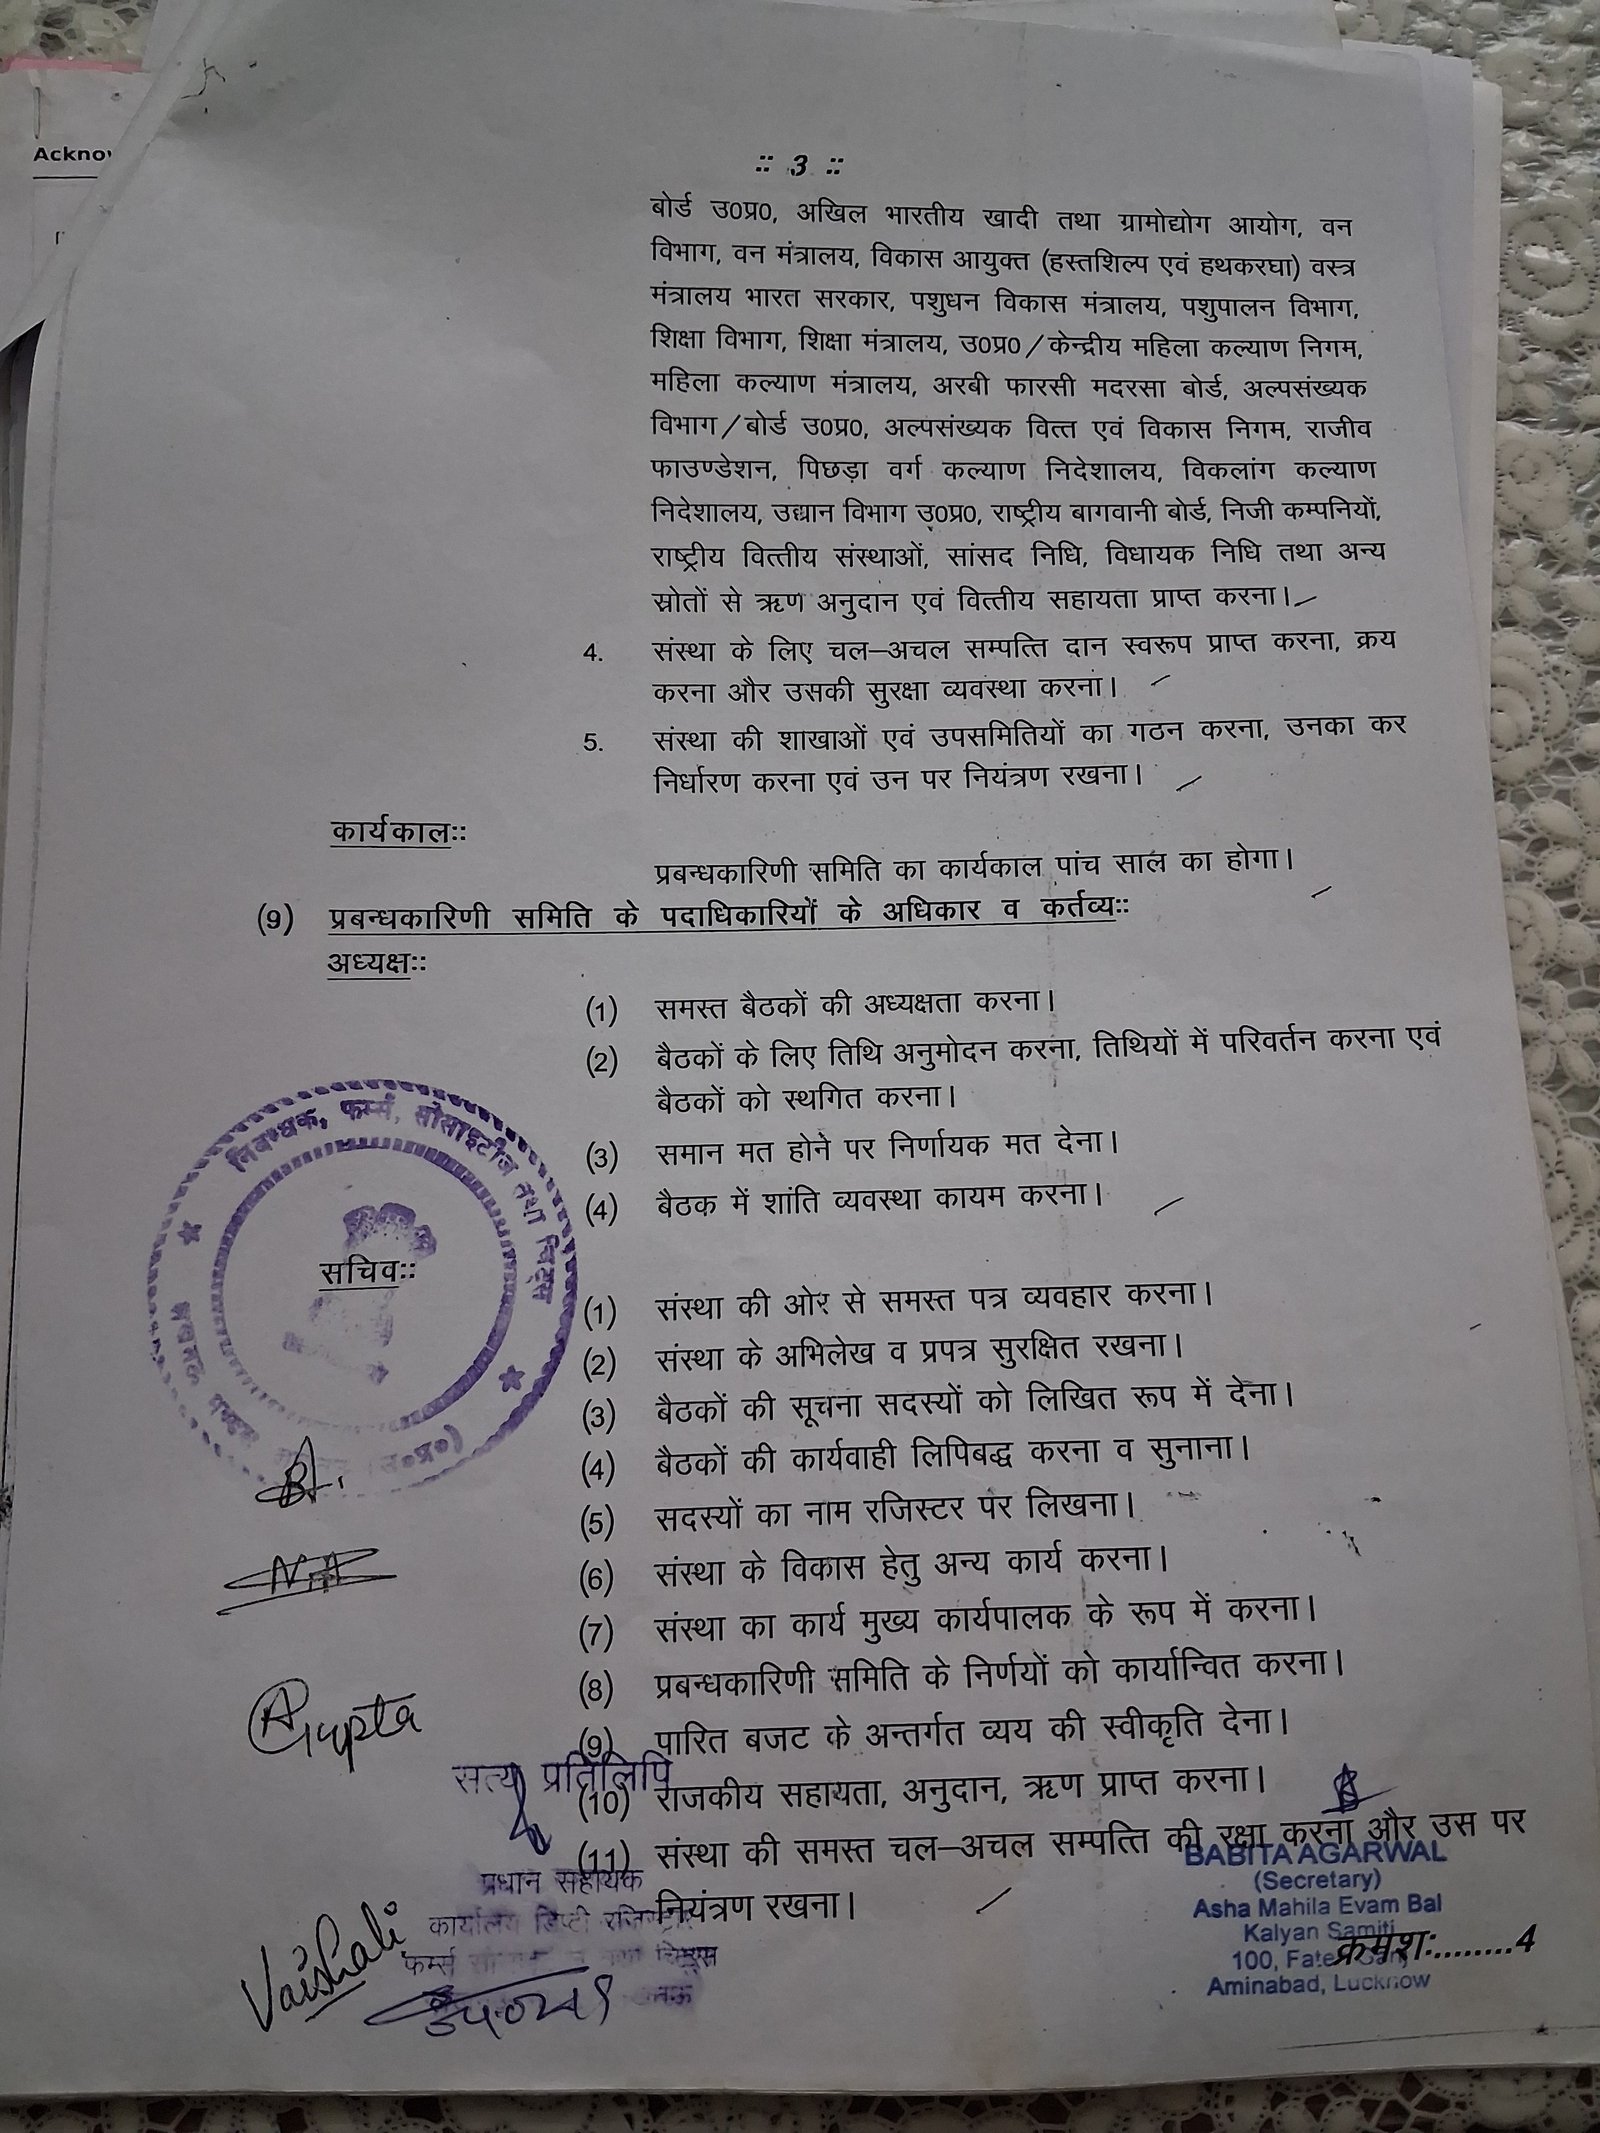 Ackno
:: 3 ::
बोर्ड उ0प्र0, अखिल भारतीय खादी तथा ग्रामोद्योग आयोग, वन
विभाग, वन मंत्रालय, विकास आयुक्त (हस्तशिल्प एवं हथकरघा) वस्त्र
मंत्रालय भारत सरकार, पशुधन विकास मंत्रालय, पशुपालन विभाग,
शिक्षा विभाग, शिक्षा मंत्रालय, उ0प्र0/केन्द्रीय महिला कल्याण निगम,
महिला कल्याण मंत्रालय, अरबी फारसी मदरसा बोर्ड, अल्पसंख्यक
विभाग/बोर्ड उ0प्र0, अल्पसंख्यक वित्त एवं विकास निगम, राजीव
फाउण्डेशन, पिछड़ा वर्ग कल्याण निदेशालय, विकलांग कल्याण
निदेशालय, उद्यान विभाग उ0प्र0, राष्ट्रीय बागवानी बोर्ड, निजी कम्पनियों,
राष्ट्रीय वित्तीय संस्थाओं, सांसद निधि, विधायक निधि तथा अन्य
स्रोतों से ऋण अनुदान एवं वित्तीय सहायता प्राप्त करना।
4. संस्था के लिए चल–अचल सम्पत्ति दान स्वरूप प्राप्त करना, क्रय
करना और उसकी सुरक्षा व्यवस्था करना।
5. संस्था की शाखाओं एवं उपसमितियों का गठन करना, उनका कर
निर्धारण करना एवं उन पर नियंत्रण रखना।
कार्यकाल::
प्रबन्धकारिणी समिति का कार्यकाल पांच साल का होगा।
(9) प्रबन्धकारिणी समिति के पदाधिकारियों के अधिकार व कर्तव्य::
अध्यक्ष::
(1) समस्त बैठकों की अध्यक्षता करना।
(2) बैठकों के लिए तिथि अनुमोदन करना, तिथियों में परिवर्तन करना एवं
बैठकों को स्थगित करना।
(3) समान मत होने पर निर्णायक मत देना।
(4) बैठक में शांति व्यवस्था कायम करना।
निबन्धक, फर्म्स, सोसाइटीज तथा चिट्स
(उ०प्र०)
सचिव::
(1) संस्था की ओर से समस्त पत्र व्यवहार करना।
(2) संस्था के अभिलेख व प्रपत्र सुरक्षित रखना।
(3) बैठकों की सूचना सदस्यों को लिखित रूप में देना।
(4) बैठकों की कार्यवाही लिपिबद्ध करना व सुनाना।
(5) सदस्यों का नाम रजिस्टर पर लिखना।
(6) संस्था के विकास हेतु अन्य कार्य करना।
(7) संस्था का कार्य मुख्य कार्यपालक के रूप में करना।
(8) प्रबन्धकारिणी समिति के निर्णयों को कार्यान्वित करना।
(9) पारित बजट के अन्तर्गत व्यय की स्वीकृति देना।
(10) राजकीय सहायता, अनुदान, ऋण प्राप्त करना।
(11) संस्था की समस्त चल–अचल सम्पत्ति की रक्षा करना और उस पर
नियंत्रण रखना।
Gupta
सत्य प्रतिलिपि
प्रधान सहायक
कार्यालय डिप्टी रजिस्ट्रार
फर्म्स चिट्स
Vaishali
BABITA AGARWAL
(Secretary)
Asha Mahila Evam Bal
Kalyan Samiti
100,
Aminabad, Lucknow
क्रमशः........4